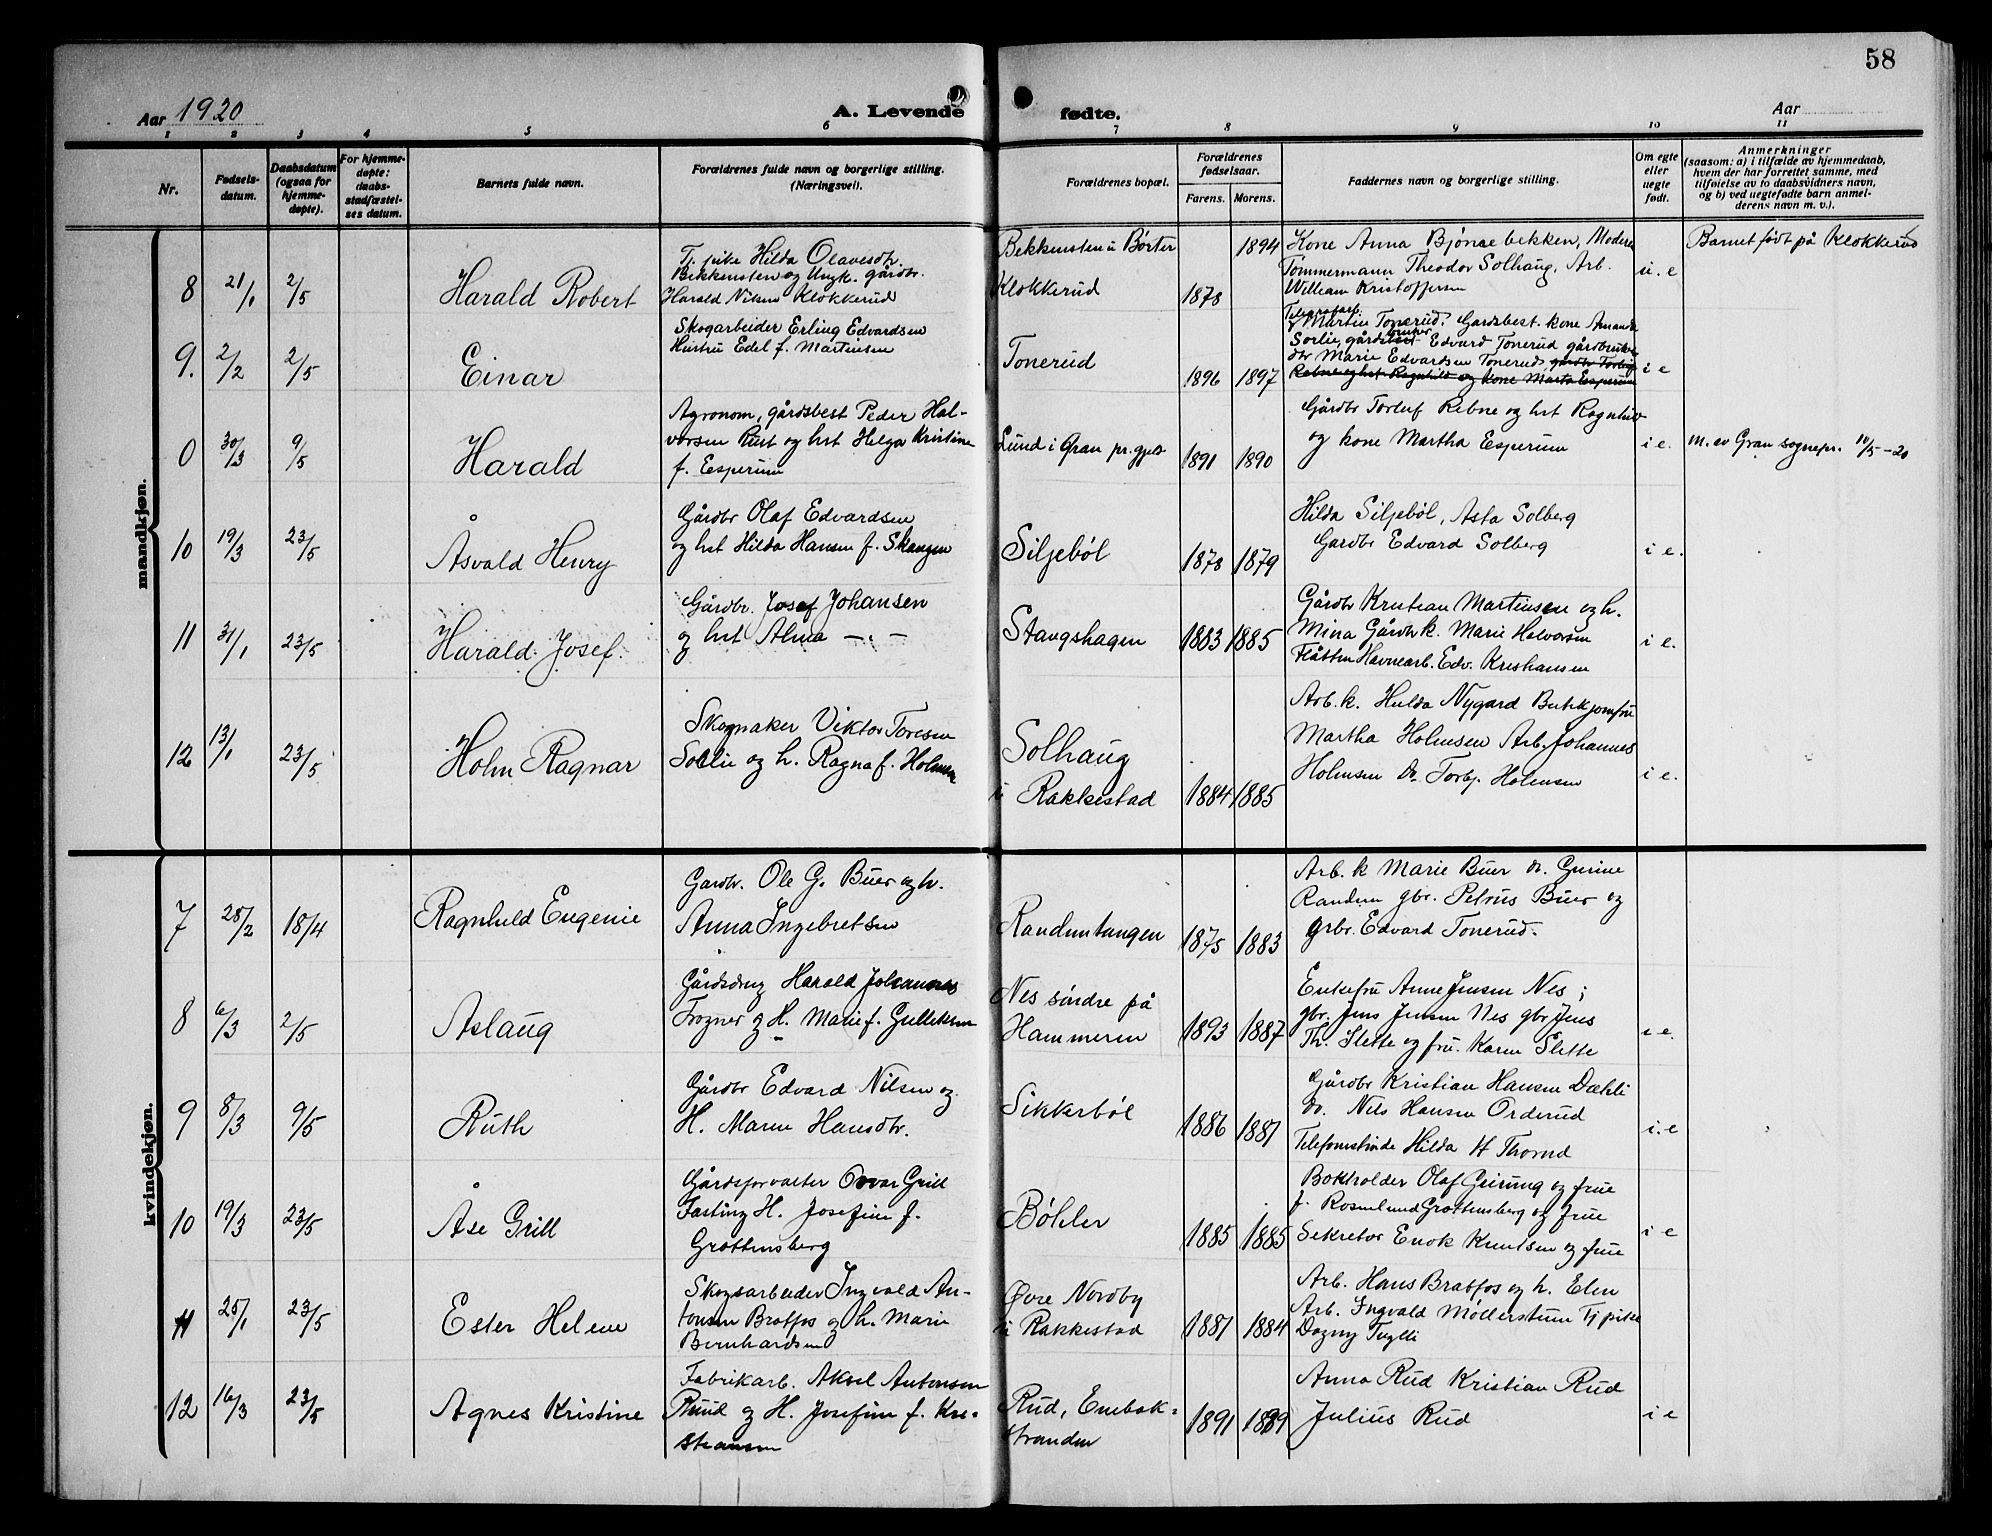 58
Aar 1920
A. Levende
fødte.
Aar
1 2 3 4 5 6 7 8 9 10 11
Nr.
Fødsels-
datum.
Daabsdatum
(ogsaa for
hjemme-
døpte).
For hjemme-
døpte:
daabs-
stadfæstel-
ses datum.
Barnets fulde navn.
Forældrenes fulde navn og borgerlige stilling.
(Næringsvei).
Forældrenes bopæl.
Forældrenes
fødselsaar.
Farens. Morens.
Faddernes navn og borgerlige stilling.
Om egte
eller
uegte
født.
Anmerkninger
(saasom: a) i tilfælde av hjemmedaab,
hvem der har forrettet samme, med
tilføielse av to daabsvidners navn,
og b) ved uegtefødte barn anmel-
derens navn m. v.).
mandkjøn.
8 21/1 2/5 Harald Robert
Tj. pike Hilda Olavesdtr.
Bekkensten og Ungk. gårdbr.
Harald Nilsen Klokkerud
Bekkensten i Børter
Klokkerud
1878 1894
Kone Anna Bjønnebekken, Moderen
Tømmermann Theodor Solhaug, Arb.
William Kristoffersen
u. e
Barnet født på Klokkerud
9. 2/2 2/5 Einar
Skogarbeider Erling Edvardsen
Hustru Edel f. Martinsen
Tonerud
1896 1897
Martin Tonerud. Gardsbest. kone Amanda
Sørlie, gårdbruker Edvard Tonerud gårdbruker
dtr Marie Edvardsen Tonerud, gårdbr Torleif
Rebne og hst Ragnhild og kone Marta Esperum
i e
0 30/3 9/5 Harald
Agronom, gårdsbest Peder Hal-
vorsen Rust og hst Helga Kristine
f. Esperum
Lund i Gran pr.gjeld
1891 1890
Gårdbr Torleif Rebne og hst Ragnhild
og kone Martha Esperum
i e.
m. av Gran sognepr. 10/5 -20
10 19/3 23/5 Åsvald Henry
Gårdbr Olaf Edvardsen
og hst Hilda Hansen f. Skaugen
Siljebøl
1878 1879
Hilda Siljebøl, Asta Solberg
Gardbr Edvard Solberg
i e.
11 31/1 23/5 Harald Josef.
Gårdbr. Josef Johansen
og hst Alma — " —
Stangshagen
1883 1885
Gårdbr Kristian Martinsen og h.
Mina Gårdbrk. Marie Halvorsen
Flåtten Havnearb. Edv. Kristiansen
i e.
12 13/1 23/5 Holm Ragnar
Skomaker Viktor Toresen
Solli og h. Ragna f. Holmsen
Solhaug
i Rakkestad
1884 1885
Arb. k. Hulda Nygard Butikjomfru
Martha Holmsen Arb. Johannes
Holmsen Do Torbj. Holmsen
i e.
kvindekjøn.
7 28/2 18/4 Ragnhild Eugenie
Gardbr. Ole G. Buer og h.
Anna Ingebretsen
Randemtangen
1875 1883
Arb. k Marie Buer do. Gurine
Randem gbr. Petrus Buer og
grbr. Edvard Tonerud.
8 6/3 2/5 Aslaug
Gårdsdreng Harald Johannes
Frogner og H. Marie f. Gulleksen
Nes søndre på
Hammeren
1893 1887
Enkefru Anne Jensen Nes;
gbr. Jens Jensen Nes gbr Jens
Th. Slette og fru. Karen Slette
i e.
9 8/3 9/5 Ruth
Gårdbr Edvard Nilsen og
H. Maren Hansdtr.
Sikkerbøl
1886 1887
Gårdbr Kristian Hansen Dæhli
do. Nils Hansen Orderud
Telefonistinde Hilda H Thorud
i. e
10 19/3 23/5 Åse Grill
Gårdsforvalter Orvar Grill
Fasting H. Josefine f.
Grottensberg
Bøhler
1885 1885
Bokholder Olaf Geirung og frue
f. Rosenlund Grottensberg og frue
Sekretær Enok Knutsen og frue
i e
11 25/1 23/5 Ester Helene
Skogsarbeider Ingvald An-
tonsen Bratfos og h. Marie
Bernhardsen
Øvre Nordby
i Rakkestad
1887 1884
Arb. Hans Bratfos og h. Elen
Arb. Ingvald Møllerstuen Tj pike
Dagny Tuglli
12 16/3 23/5 Agnes Kristine
Fabrikarb. Aksel Antonsen
Ruud og H. Josefine f. Kri-
stiansen
Rud, Enebak-
stranden
1891 1889
Anna Rud Kristian Rud
Julius Rud
i e